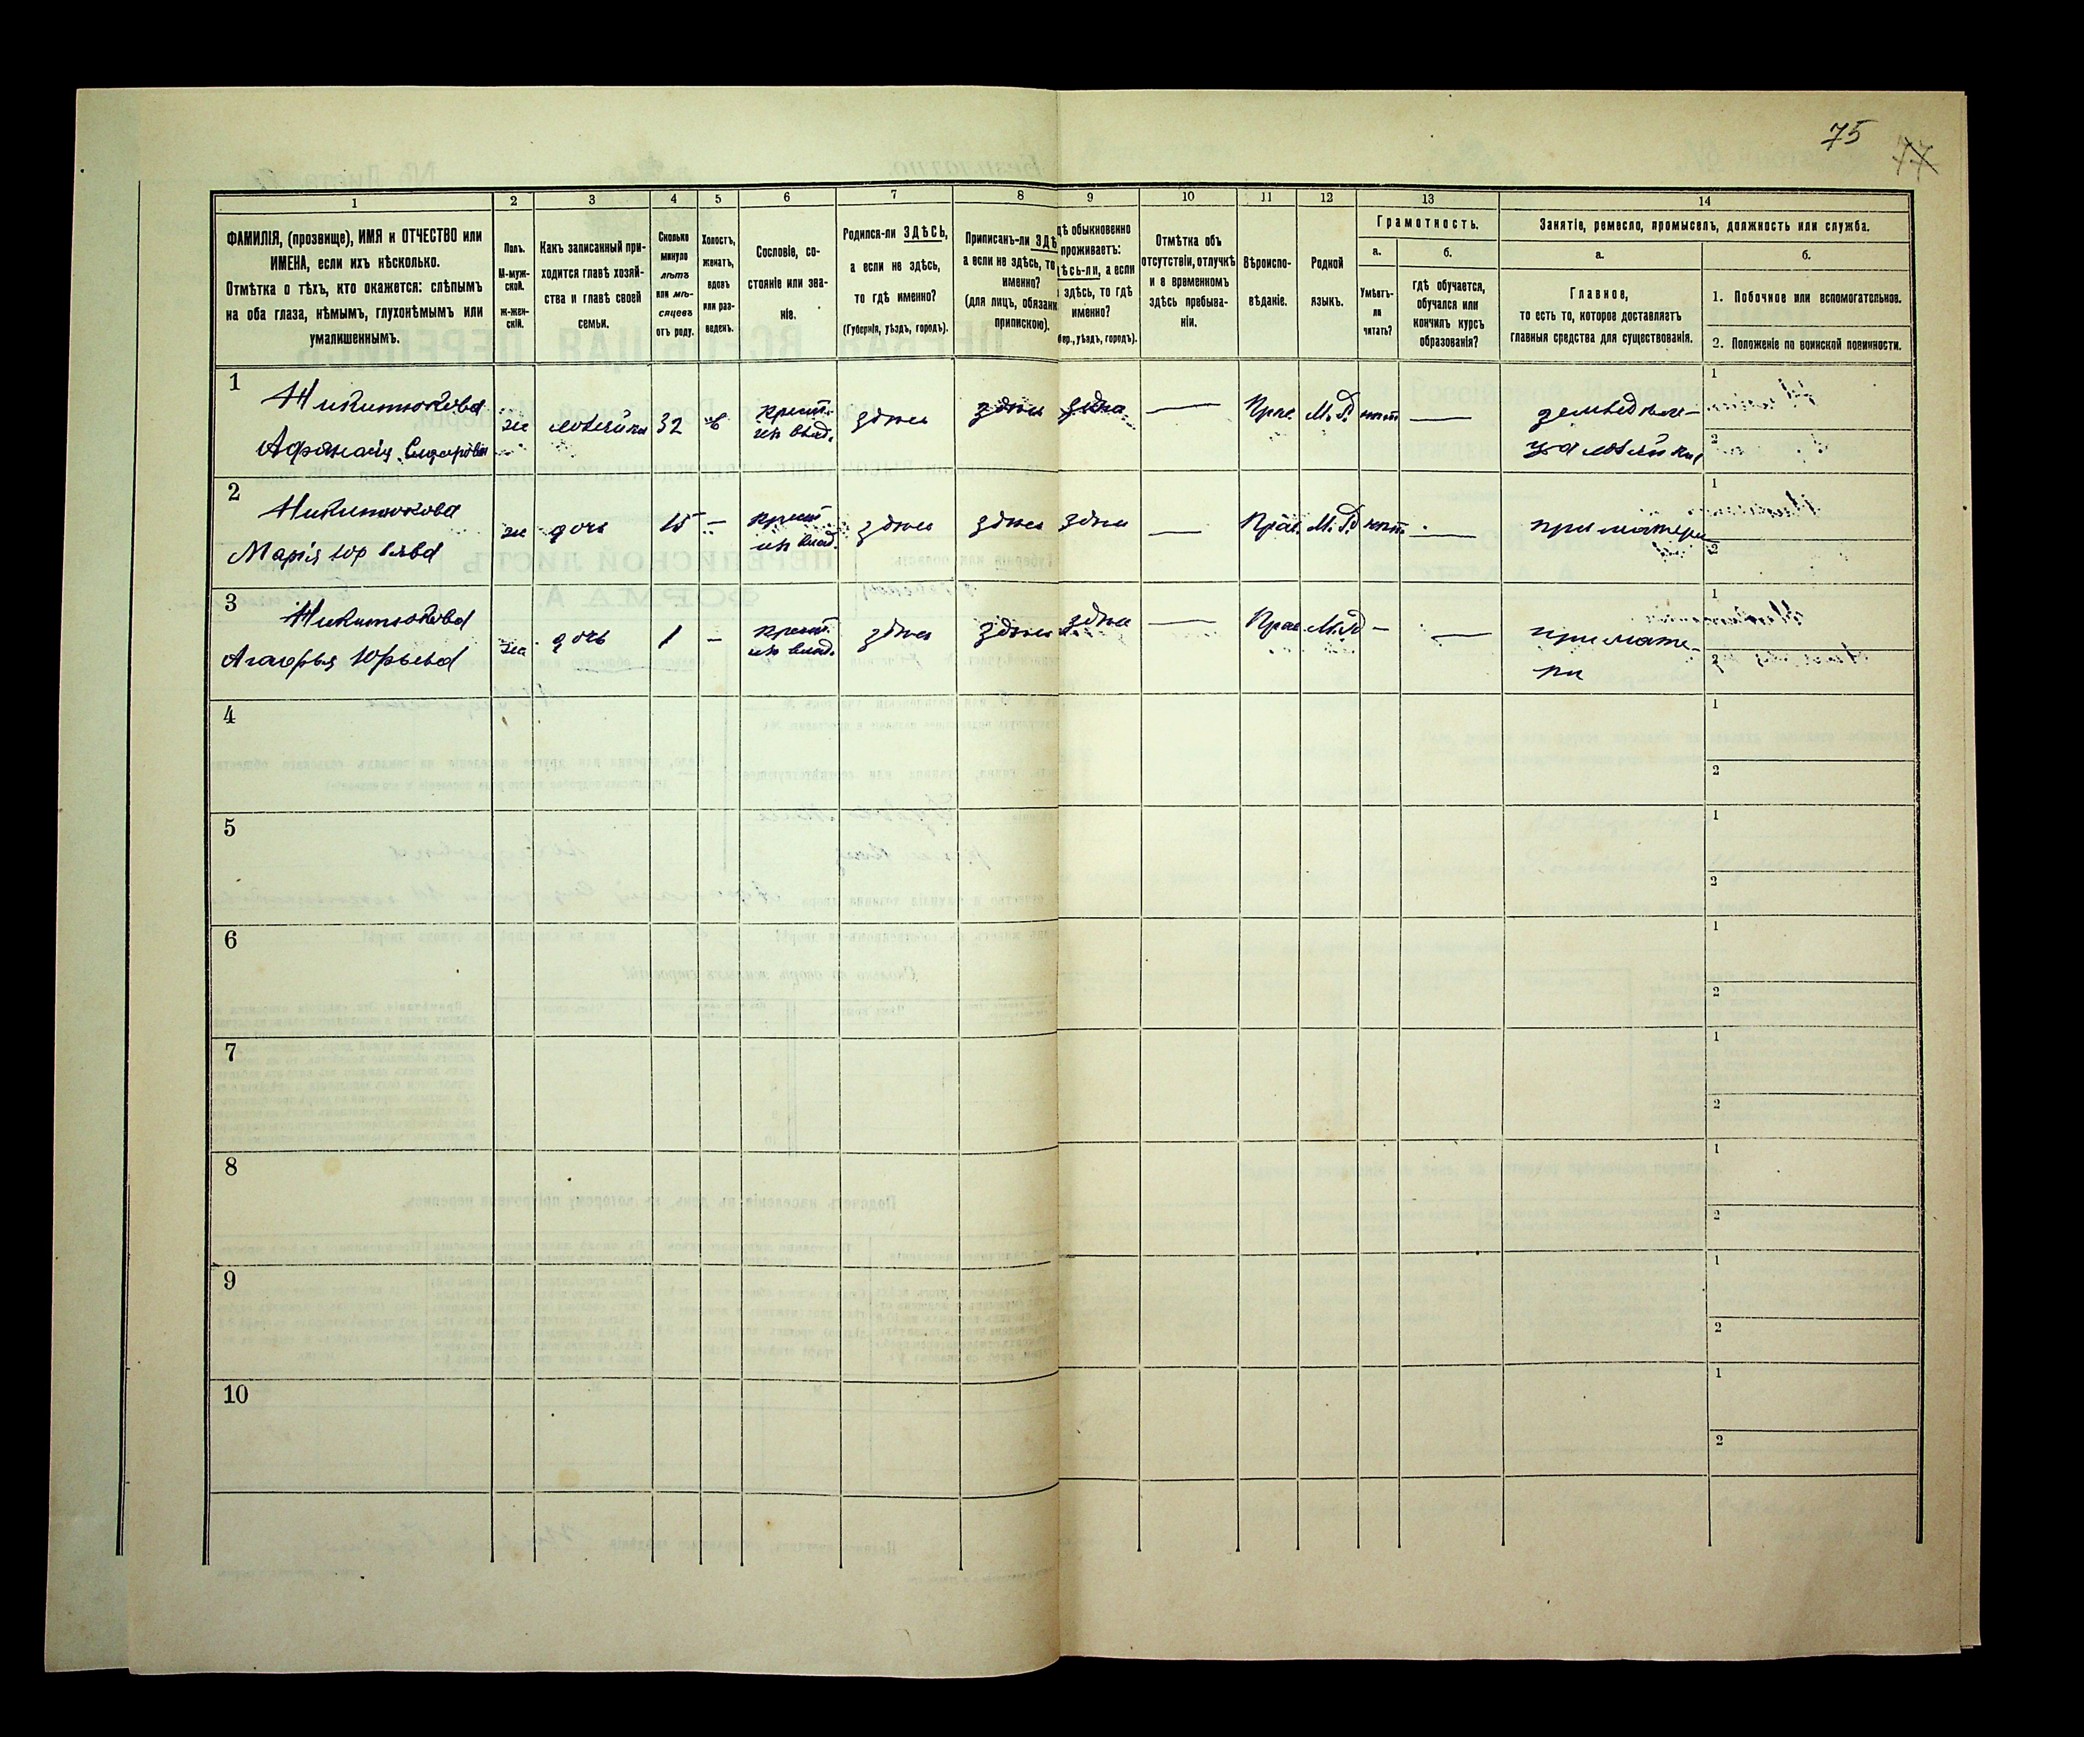 75
77
1
2
3
4
5
6
7
8
9
10
11
12
13
14
ФАМИЛІЯ, (прозвище), ИМЯ и ОТЧЕСТВО или
ИМЕНА, если ихъ нѣсколько.
Отмѣтка о тѣхъ, кто окажется: слѣпымъ
на оба глаза, нѣмымъ, глухонѣмымъ или
умалишеннымъ.
Полъ.
М-муж-
ской.
Ж-жен-
скій.
Какъ записанный при-
ходится главѣ хозяй-
ства и главѣ своей
семьи.
Сколько
минуло
лѣтъ
или мѣ-
сяцевъ
отъ роду.
Холостъ,
женатъ,
вдовъ
или раз-
веденъ.
Сословіе, со-
стояніе или зва-
ніе.
Родился-ли ЗДѢСЬ,
а если не здѣсь,
то гдѣ именно?
(Губернія, уѣздъ, городъ).
Приписанъ-ли ЗДѢ
а если не здѣсь, то
именно?
(для лицъ, обязанн
припискою).
дѣ обыкновенно
проживаетъ:
ѣсь-ли, а если
здѣсь, то гдѣ
именно?
бер., уѣздъ, городъ).
Отмѣтка объ
отсутствіи, отлучкѣ
и о временномъ
здѣсь пребыва-
ніи.
Вѣроиспо-
вѣданіе.
Родной
языкъ.
Грамотность.
а.
Умѣетъ-
ли
читать?
б.
гдѣ обучается,
обучался или
кончилъ курсъ
образованія?
Занятіе, ремесло, промыселъ, должность или служба.
а.
Главное,
то есть то, которое доставляетъ
главныя средства для существованія.
б.
1. Побочное или вспомогательное.
2. Положеніе по воинской повинности.
1
Никитюкова
Афанасія Сидорова
же
хозяйка
32
в
крест.
изъ влад.
здѣсь
здѣсь
здѣсь
—
Прав.
М. Р.
нѣтъ
—
земледѣль-
ца хозяйка
1
2
2
Никитюкова
Марія Юрьева
же
дочь
15
—
крест.
изъ влад.
здѣсь
здѣсь
здѣсь
—
Прав.
М. Р.
нѣтъ
—
при матери
1
2
3
Никитюкова
Агафья Юрьева
же
дочь
1
—
крест.
изъ влад.
здѣсь
здѣсь
здѣсь
—
Прав.
М. Р.
—
—
при мате-
ри
1
2
4
1
2
5
1
2
6
1
2
7
1
2
8
1
2
9
1
2
10
1
2